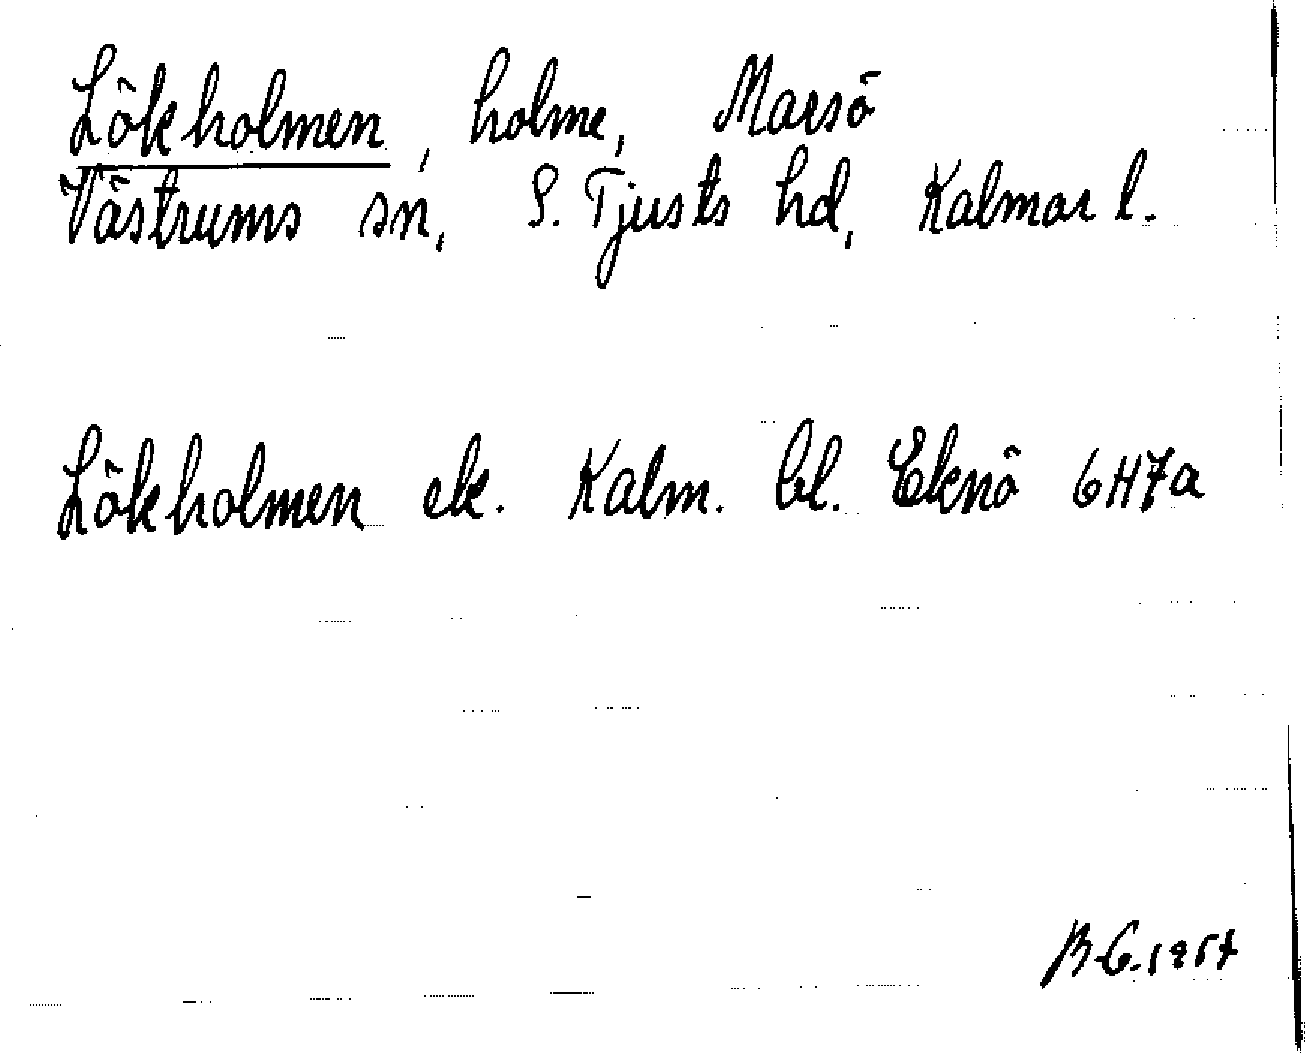 Lökholmen, holme, Marsö
Västrums sn, S. Tjusts hd, Kalmar l.
Lökholmen ek. Kalm. bl. Eknö 6H7a